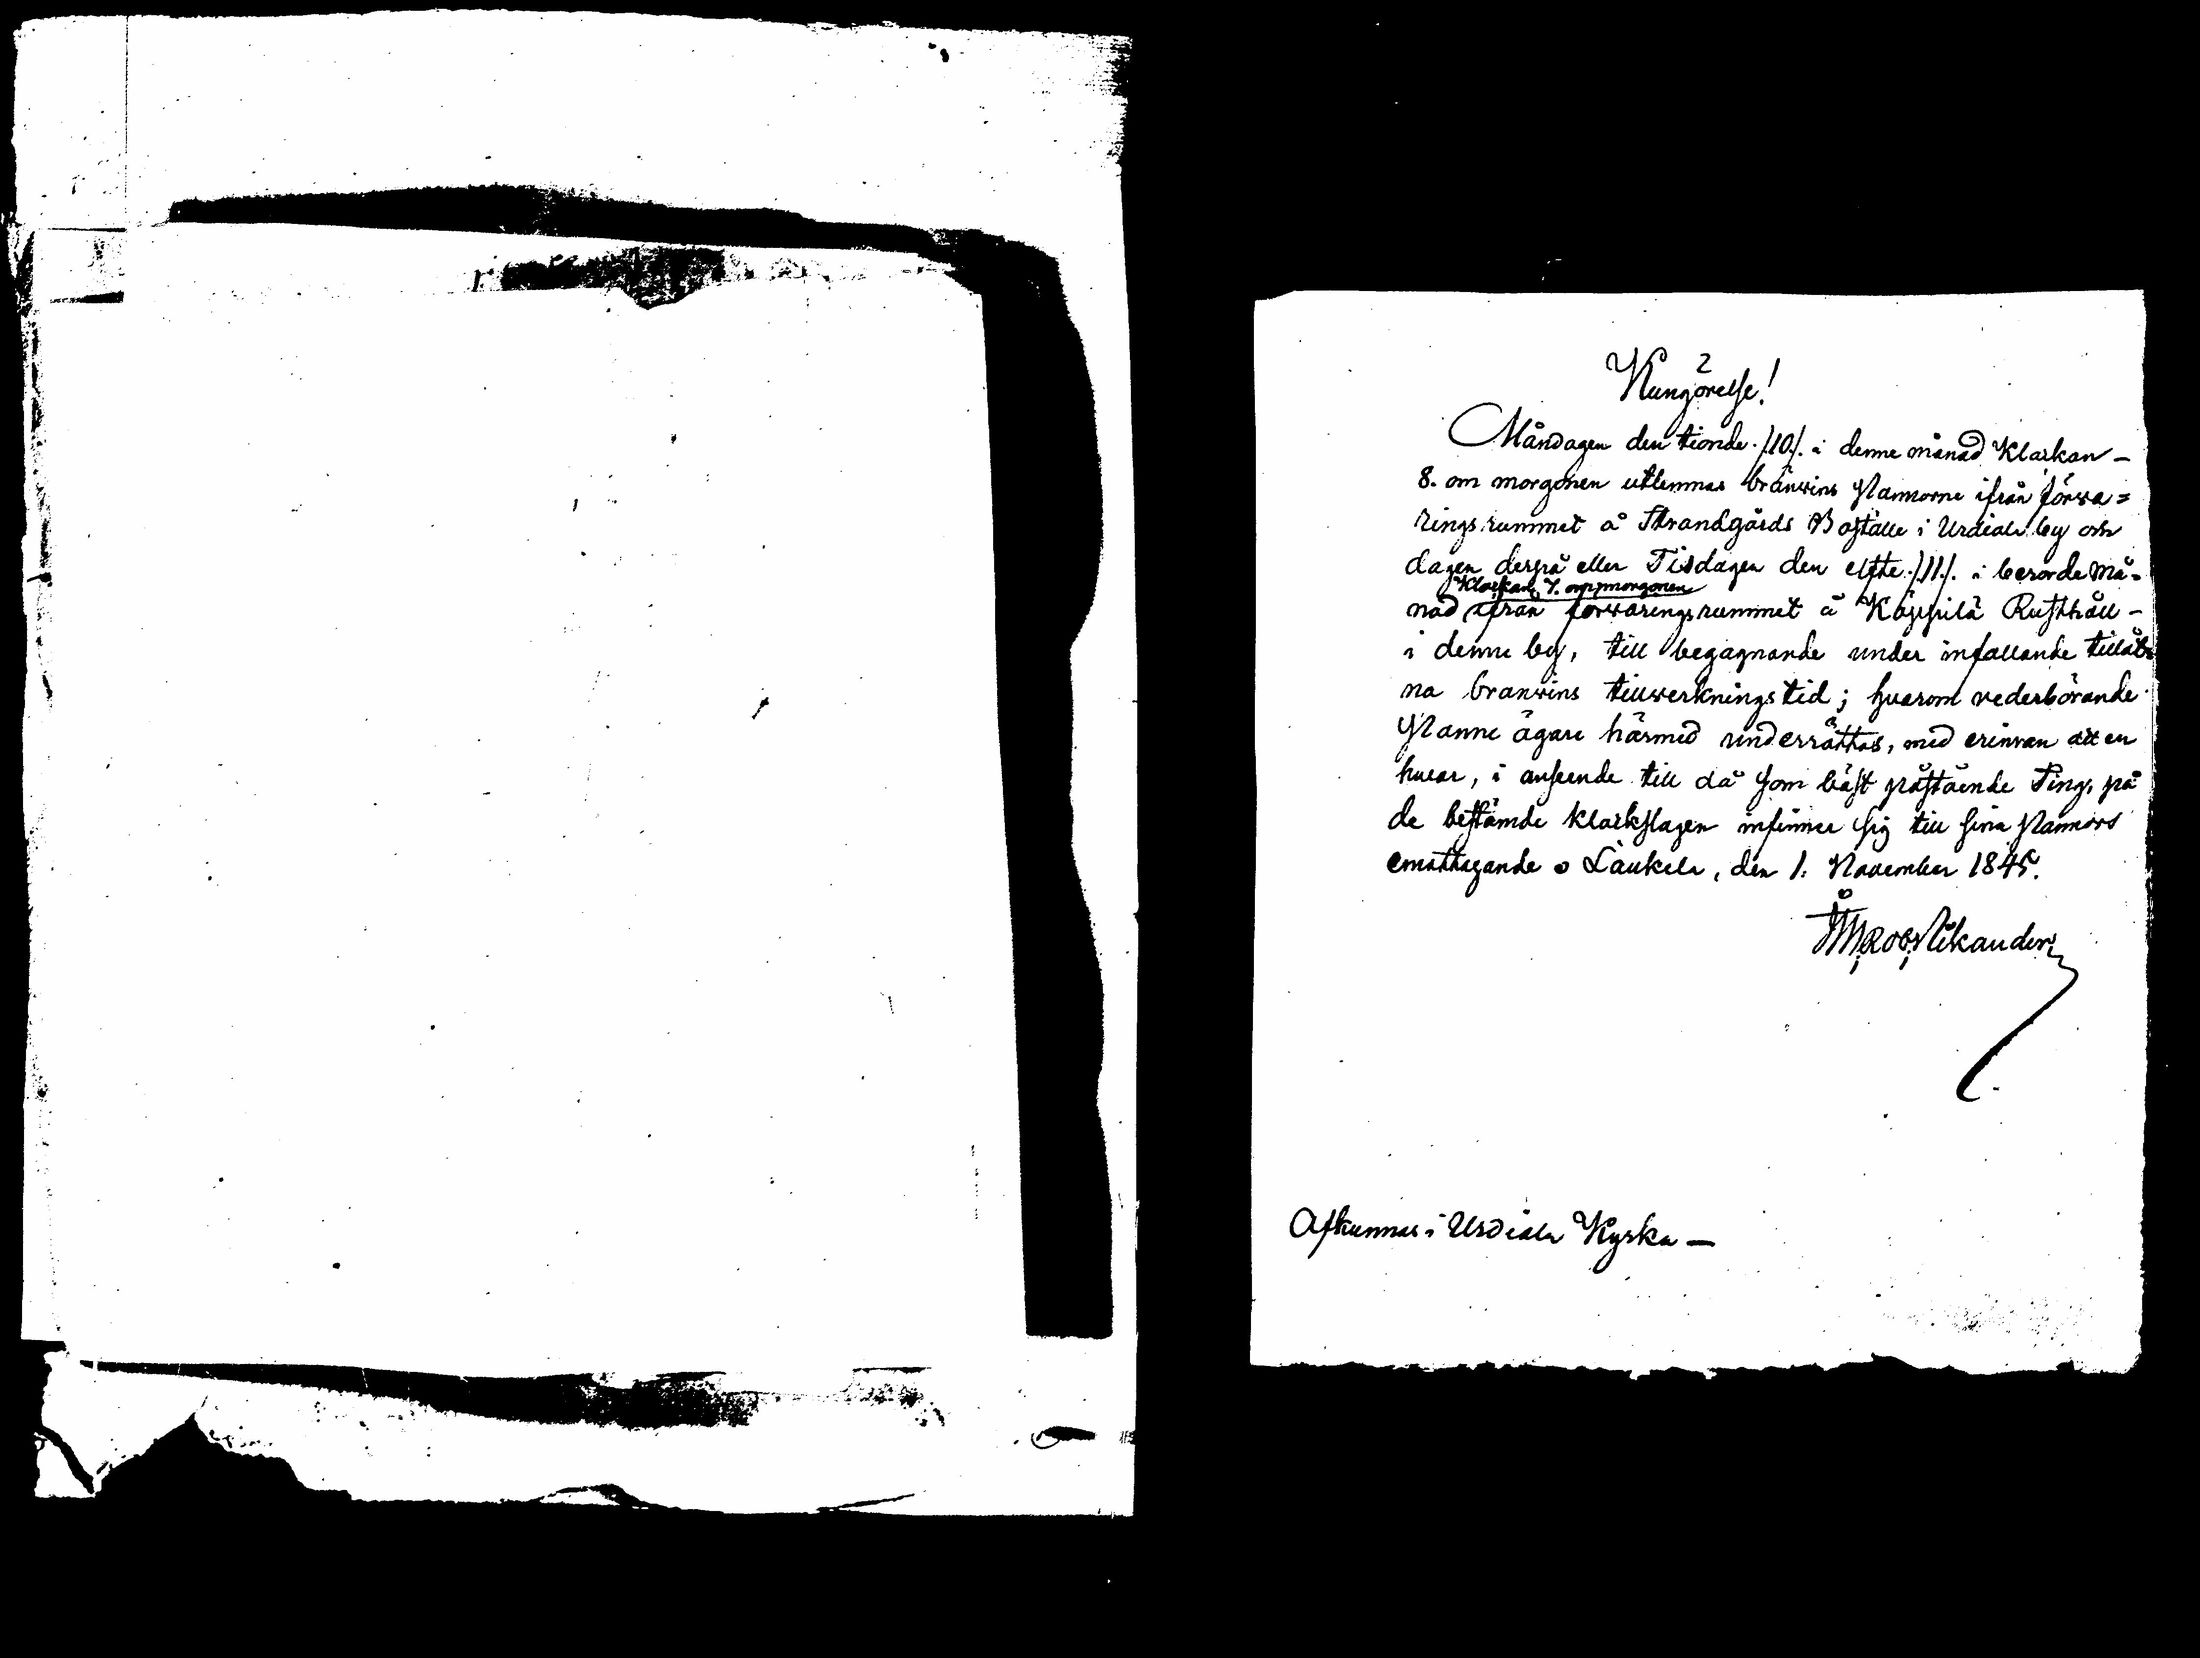 Kungörelse!
Måndagen den tionde ./.10./. i denne månad Klockan -
8. om morgonen utlemnas bränvins Pannorne ifrån förva=
rings rummet å Strandgårds Boställe i Urdiala by och
dagen derpå eller Tisdagen den elfte ./.11./. i berörde må-
Klockan 7. om morgonen
nad ifrån förvarings rummet å Käppilä Rusthåll -
i denne by, till begagnande under infallande tillåt-
na bränvins tillverknings tid; hvarom vederbörande
Panne ägare härmed underrättas, med erinran att en
hvar, i anseende till då som bäst påstående Ting, på
de bestämde klockslagen infinner sig till sina Pannors
emottagande o Laukela, den 1. November 1845.
Nikander
Afkunnas i Urdiala Kyrka -